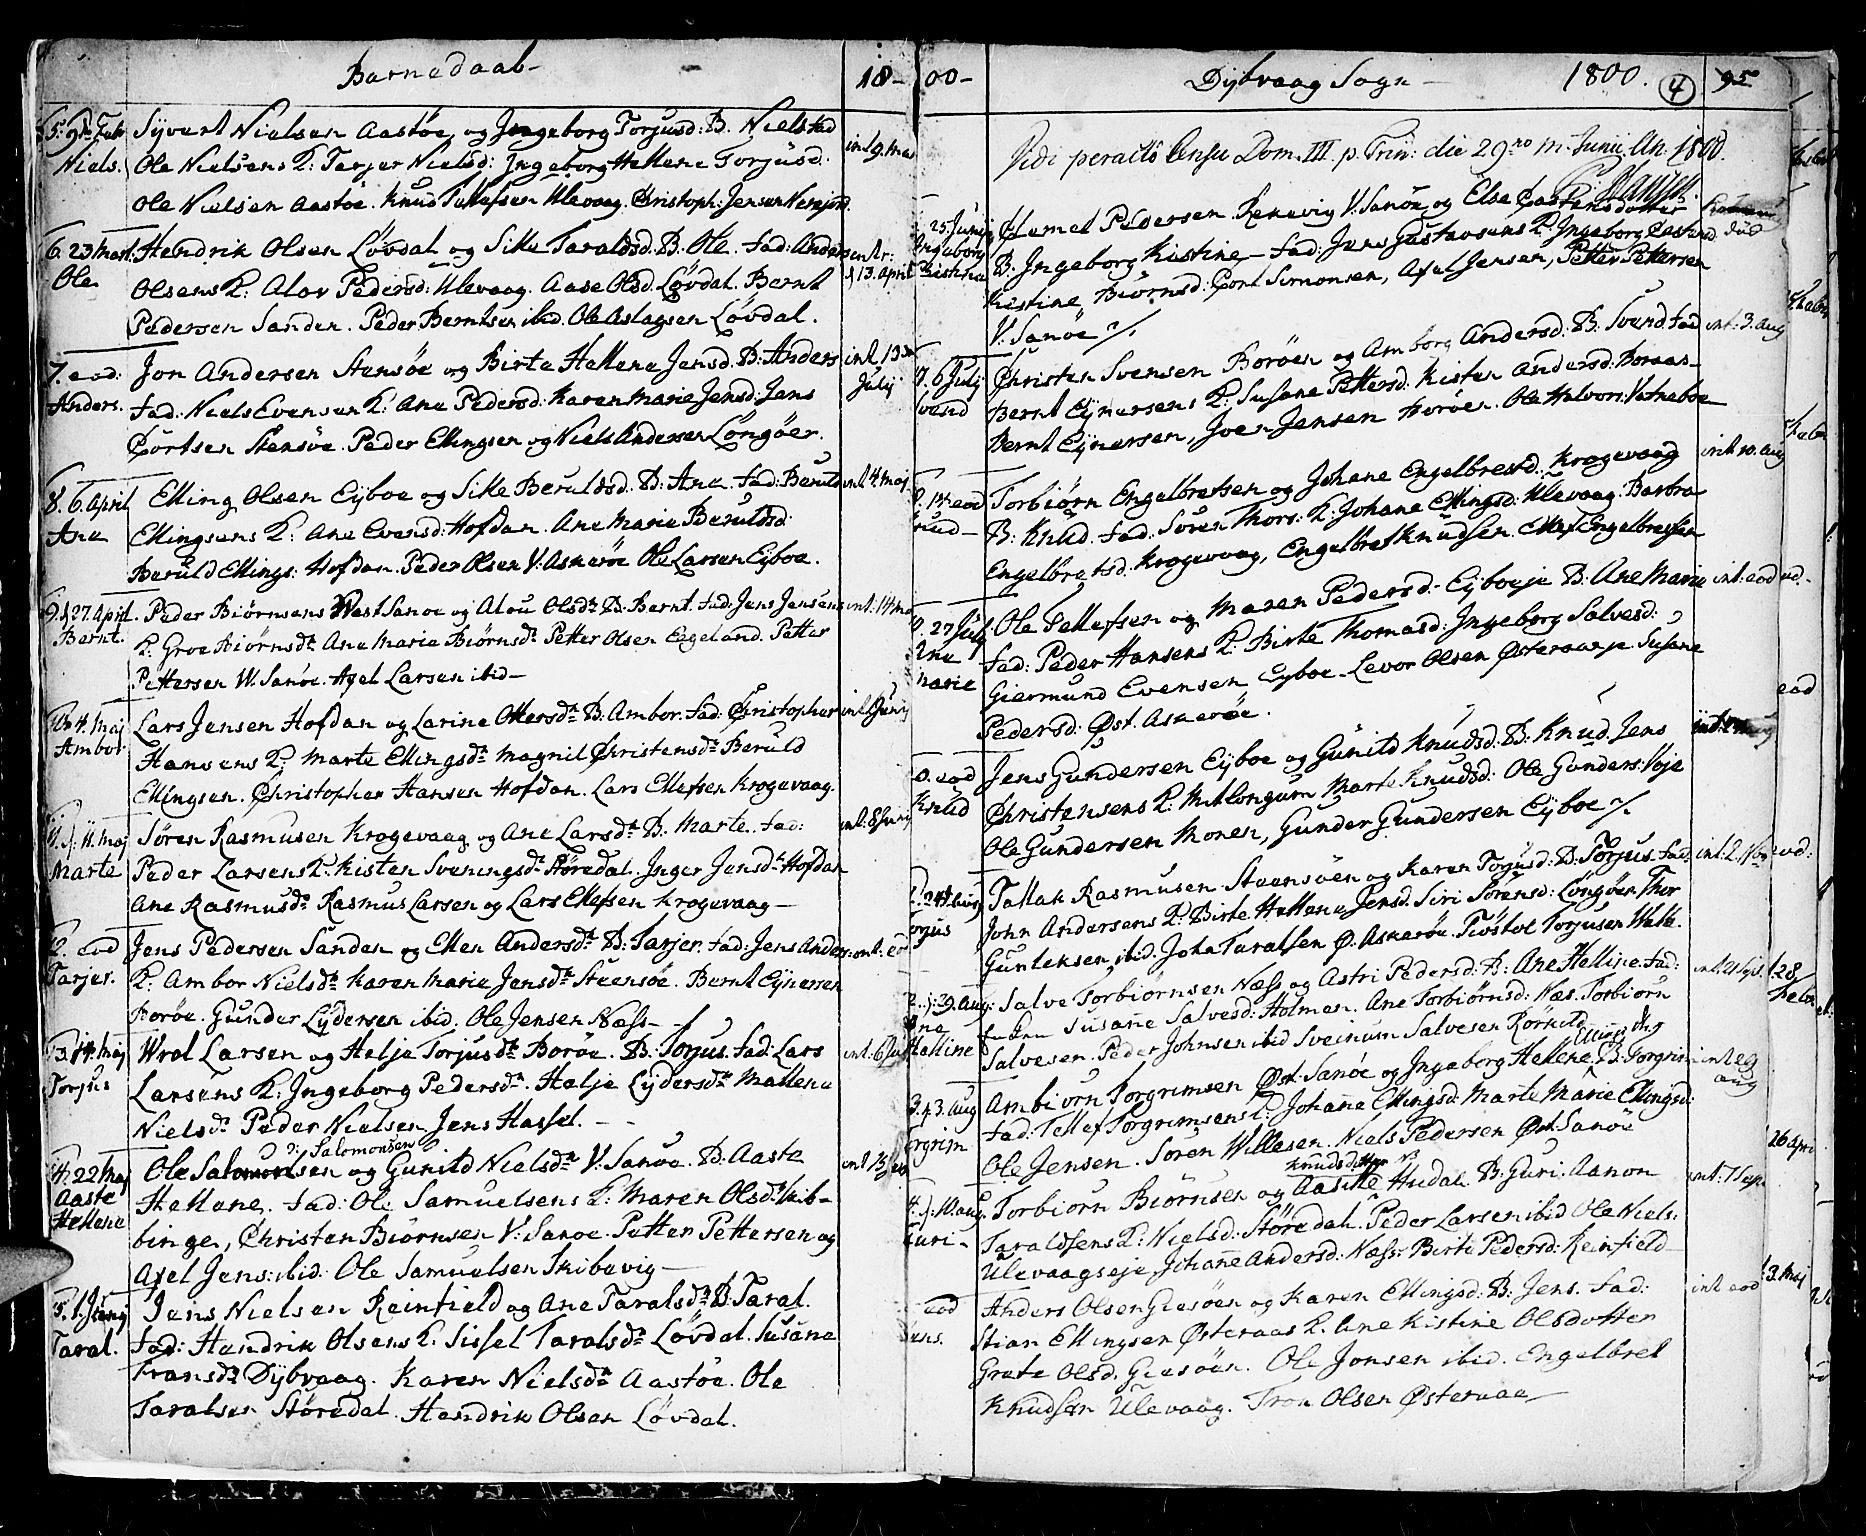 Barnedaab-
18-
5. 9de Feb
Niels.
Syvert Nielsen Aastøe, og Ingeborg Torjusd: B. Niels fad
Ole Nielsens K: Terjer Nielsd: Ingeborg Hellene Torjusd:
Ole Nielsen Aastøe. Knud Tellefsen Ulevaag. Christoph: Jensen
int. 9. mai
6. 23 Mart.
Ole
Hendrik Olsen Løvdal og Silke Taraldsd: B. Ole. fad: Anders
Olsens K: Alov Pedersd: Ulevaag. Aase Olsd. Løvdal. Bernt
Pedersen Sanden. Peder Berntsen ibid. Ole Aslagsen Løvdal.
intr:
d 13. april
7. eod:
Anders.
Jon Andersen Stensøe og Birte Hellene Jensd: B: Anders
fad: Niels Evensen K: Ane Pedersd: Karen Marie Jensd: Jens
Cortsen Stensøe. Peder Ellingsen og Niels Andersen Longøer.
int. 13
Julij
8. 6. April
Ane
Elling Olsen Eyboe og Silke Beruldsd. B: Ane. fad: Beruld
Ellingsens K: Ane Evensd: Hofdan. Ane Marie Beruldsd:
Beruld Ellings. Hofdan. Peder Olsen V. Askerøe Ole Larsen Eyboe.
int. 4. maj
9. d 27. April.
Bernt.
Peder Biørnsens West Sanøe og Alou Olsdr B: Bernt. fad: Jens Jensens
K: Groe Biørnsdr Ane Marie Biørnsdr Petter Olsen Eegeland. Petter
Pettersen W. Sanøe. Axel Larsen ibid-
int: 14
10. 4. Maj
Ambor
Lars Jensen Hofdan og Larine Ottersdr B. Ambor. fad: Christopher
Hansens K: Marte Ellingsdr Magnil Christensdr Beruld
Ellingsen. Christopher Hansen Hofdan. Lars Ellefsen Krogevaag.
int. Junij
11. d. 11. Maj
Marte
Søren Rasmusen Krogevaag og Ane Larsdr B. Marte. fad:
Peder Larsens K: Kisten Sveningsdr Støredal. Inger Jensdr Hofdan
Ane Rasmusdr Rasmus Larsen og Lars Ellefsen Krogevaag-
int: 8 Junij
12. eod
Tarjer.
Jens Pedersen Sanden og Ellen Andersdr B: Tarjer. fad: Jens Anders:
K: Ambor Nielsdr Karen Marie Jensdr Steensøe. Bernt Eynersen
Borøe. Gunder Lydersen ibid. Ole Jensen Næss-
int: eod
13. 14. Maj
Torjus
Wrol Larsen og Helje Torjusdr Borøe. B: Torjus. fad: Lars
Larsens K: Ingeborg Pedersdr. Helje Lydersdr Mallene
Nielsdr Peder Nielsen Jens Hassel. -
int: 6 Julij
14. 22 Maj
Aaste
Hellene
ɔ: Salomonsen
Ole Salomonsen og Gunild Nielsdr V: Sanøe. B. Aaste
Hellene. fad: Ole Samuelsens K: Maren Olsdr Skib-
bingen, Christen Biørnsen V: Sanoe. Petter Pettersen og
Axel Jens: ibid: Ole Samuelsen Skibevig-
15. 1. Junij
Taral.
Jens Nielsen Reinfield og Ane Taralsdr B. Taral.
fad: Hendrik Olsens K. Sissel Taralsdr Løvdal. Susane
Fransdr Dybvaag. Karen Nielsdr Aastøe. Ole
Taralsen Støredal. Hendrik Olsen Løvdal.
00-
Dybvaag Sogn-
1800.
4
95
Vidi peracto Censu Dom. III. p. Trin: die 29no m. Junii An. 1800.
25. Junij
Ingeborg
Kistine
Clemet Pedersen Kenevig V. Sanøe og Else Castensdotter
B: Ingeborg Kistine- fad: Jens Gustavsens K: Ingeborg Castensd.
Kistine Biørnsd: Cort Simonsen, Axel Jensen, Petter Pettersen
V. Sanøe %
7. 6 Julij
Svend
Christen Svensen Borøen og Amborg Andersd: B: Svend. fad
Bernt Eynersens K: Susane Pettersd: Kisten Andersd: Boraas-
Bernt Eynersen, Joen Jensen Borøen. Ole Halvors: Vatneboe
int. 3. aug
Knud-
Torbiørn Engelbretsen og Johane Engelbretsd: Krogevaag
B: Knud. fad. Søren Thors: K: Johane Ellingsd: Ulevaag. Barbra
Engelbretsd. Krogevaag, Engelbret Knudsen. Ellef Engelbretsen
int. 10. aug
27 Jul
Ane
Marie
Ole Tellefsen og Maren Pedersd: Eyboeje B: Ane Marie
fad: Peder Hansens K: Birte Thomasd: Ingeborg Salvesd:
Giermund Evensen Eyboe. Levor Olsen Østeraaeje. Susane
Pedersd: Øst. Askerøe.
int: eod
0. eod
Knud
Jens Gundersen Eyboe og Gunild Knudsd: B: Knud. Jens
Christensens K: Mitlongum Marte Knudsd: Ole Gunders: Voje
Ole Gundersen Monen, Gunder Gundersen Eyboe %
Torjus
Tallak Rasmusen Steensøen og Karen Torjusd: B: Torjus. fad:
John Andersens K: Birte Hellene Jensd. Siri Sørensd: Longøen. Thor
Gunleksen ibid. John Taralsen Ø. Askerøe. Tiøstol Torjusen
int: 2. Nov
2. d: 3. aug:
Ane
Helline
Salve Torbiørnsen Næss og Astri Pedersd: B: Ane Helline. fad:
Susane Salvesd: Holmen. Ane Torbiørnsd: Næs. Torbiørn
Salvesen. Peder Johnsen ibid Sveinum Salvesen Rørkild
int: 21 Sept.
3. d 3. Aug
Torgrim
Ellings dtr
Ambiørn Torgrimsen Øst. Sanøe og Ingeborg Hellene B: Torgrim
fad: Tellef Torgrimsens K: Johane Ellingsd: Marte Marie Ellingsd:
Ole Jensen. Søren Willesen. Niels Pedersen Øst. Sanøe
int 29
aug
4. d: 10. aug.
Guri-
Knudsdatter
Torbiørn Biørnsen og Aasille Hudal B: Guri. Aanon
Taraldsens K: Nielsd: Støredal. Peder Larsen ibid Ole Niels:
Ulevaagseje Johane Andersd: Næss. Birte Pedersd: Reinfield
int: 7 Sept
eod
Jens.
Anders Olsen Giesøen og Karen Ellingsd: B: Jens. fad:
Stian Ellingsen Østeraas K. Ane Kistine Olsdotter
Grete Olsd. Giesøen. Ole Jonsen ibid. Engelbret
Knudsen Ulevaag. Tron Olsen Østeraae
int eod
eod
28/
26 Apr
3. Maj